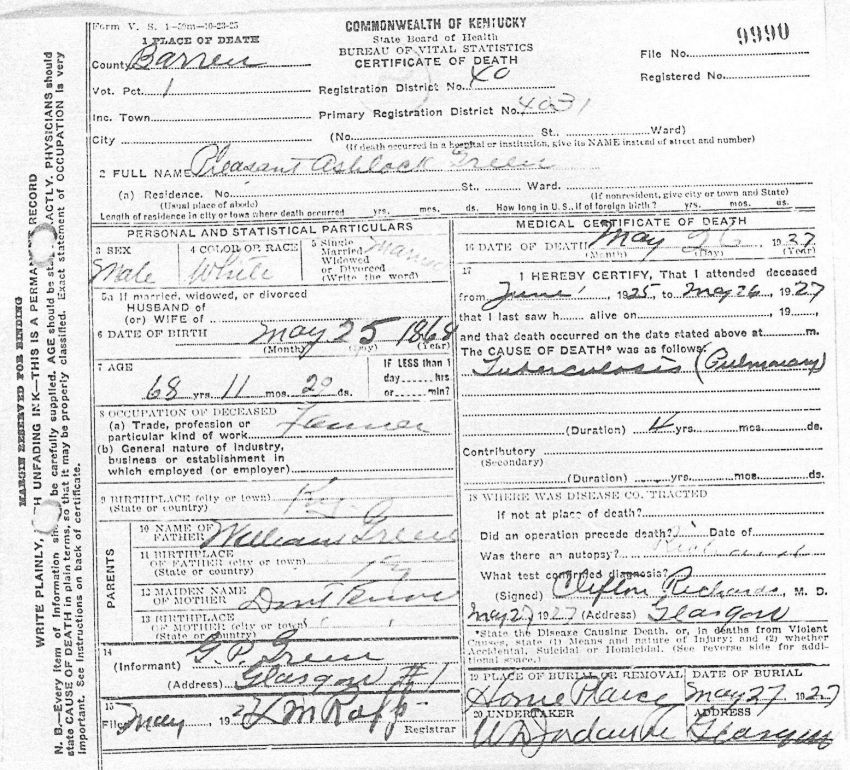 Form V. S. 1-50m-10-23-25
COMMONWEALTH OF KENTUCKY
State Board of Health
BUREAU OF VITAL STATISTICS
CERTIFICATE OF DEATH
9990
File No.
Registered No.
1 PLACE OF DEATH
County Barren
Vot. Pct. 1
Registration District No. 40
Inc. Town
Primary Registration District No. 4031
City
(No. St. Ward)
(If death occurred in a hospital or institution, give its NAME instead of street and number)
2 FULL NAME Pleasant Ashlock Green
(a) Residence. No. St. Ward.
(Usual place of abode) (If nonresident, give city or town and State)
Length of residence in city or town where death occurred yrs. mos. ds. How long in U.S., if of foreign birth? yrs. mos. ds.
PERSONAL AND STATISTICAL PARTICULARS
3 SEX
Male
4 COLOR OR RACE
White
5 Single
Married
Widowed
or Divorced
(Write the word)
Married
5a If married, widowed, or divorced
HUSBAND of
(or) WIFE of
6 DATE OF BIRTH May 25 1868
(Month) (Day) (Year)
7 AGE
68 yrs. 11 mos. 29 ds.
IF LESS than 1
day hrs
or min?
8 OCCUPATION OF DECEASED
(a) Trade, profession or
particular kind of work Farmer
(b) General nature of industry,
business or establishment in
which employed (or employer)
9 BIRTHPLACE (city or town)
(State or country) Ky
PARENTS
10 NAME OF
FATHER William Green
11 BIRTHPLACE
OF FATHER (city or town)
(State or country) Ky
12 MAIDEN NAME
OF MOTHER Dont Know
13 BIRTHPLACE
OF MOTHER (city or town)
(State or country)
14
(Informant) G. P. Green
(Address) Glasgow #1
15
Filed May 1927
Registrar
MEDICAL CERTIFICATE OF DEATH
16 DATE OF DEATH May 26 1927
(Month) (Day) (Year)
17
I HEREBY CERTIFY, That I attended deceased
from June 1, 1925, to May 26, 1927
that I last saw h alive on , 19 ,
and that death occurred on the date stated above at m.
The CAUSE OF DEATH* was as follows:
Tuberculosis (Pulmonary)
(Duration) 4 yrs. mos. ds.
Contributory
(Secondary)
(Duration) yrs. mos. ds.
18 WHERE WAS DISEASE CONTRACTED
If not at place of death?
Did an operation precede death? Date of
Was there an autopsy?
What test confirmed diagnosis?
(Signed) Clifton Richards, M. D.
May 27 1927 (Address) Glasgow
*State the Disease Causing Death, or, in deaths from Violent
Causes, state (1) Means and nature of Injury; and (2) whether
Accidental, Suicidal or Homicidal. (See reverse side for addi-
tional space.)
19 PLACE OF BURIAL OR REMOVAL
DATE OF BURIAL
May 27 1927
20 UNDERTAKER
ADDRESS
Glasgow
MARGIN RESERVED FOR BINDING
WRITE PLAINLY, UNFADING INK—THIS IS A PERMA RECORD
N. B.—Every item of information sh be carefully supplied. AGE should be sta ACTLY. PHYSICIANS should
state CAUSE OF DEATH in plain terms, so that it may be properly classified. Exact statement of OCCUPATION is very
important. See instructions on back of certificate.